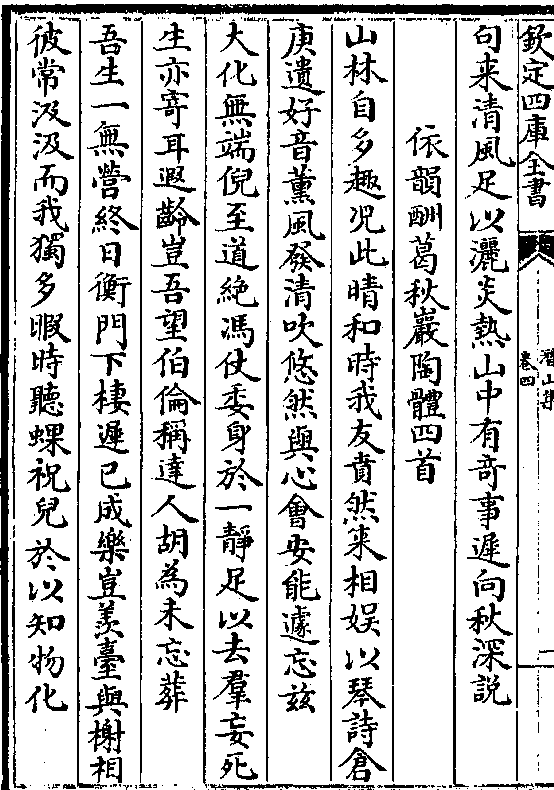 欽定四庫全書
潛山集
卷四
句来清風足以灑炎熱山中有竒事遲向秋深説
依韻酬葛秋巖陶體四首
山林自多趣况此晴和時我友賁然来相娱以琴詩倉
庚遺好音薰風發清吹悠然與心會安能遽忘兹
大化無端倪至道絶馮仗委身於一靜足以去羣妄死
生亦寄耳遐齡豈吾望伯倫稱達人胡為未忘葬
吾生一無營終日衡門下棲遲已成樂豈羨臺與榭相
彼常汲汲而我獨多暇時聽蜾祝兒於以知物化